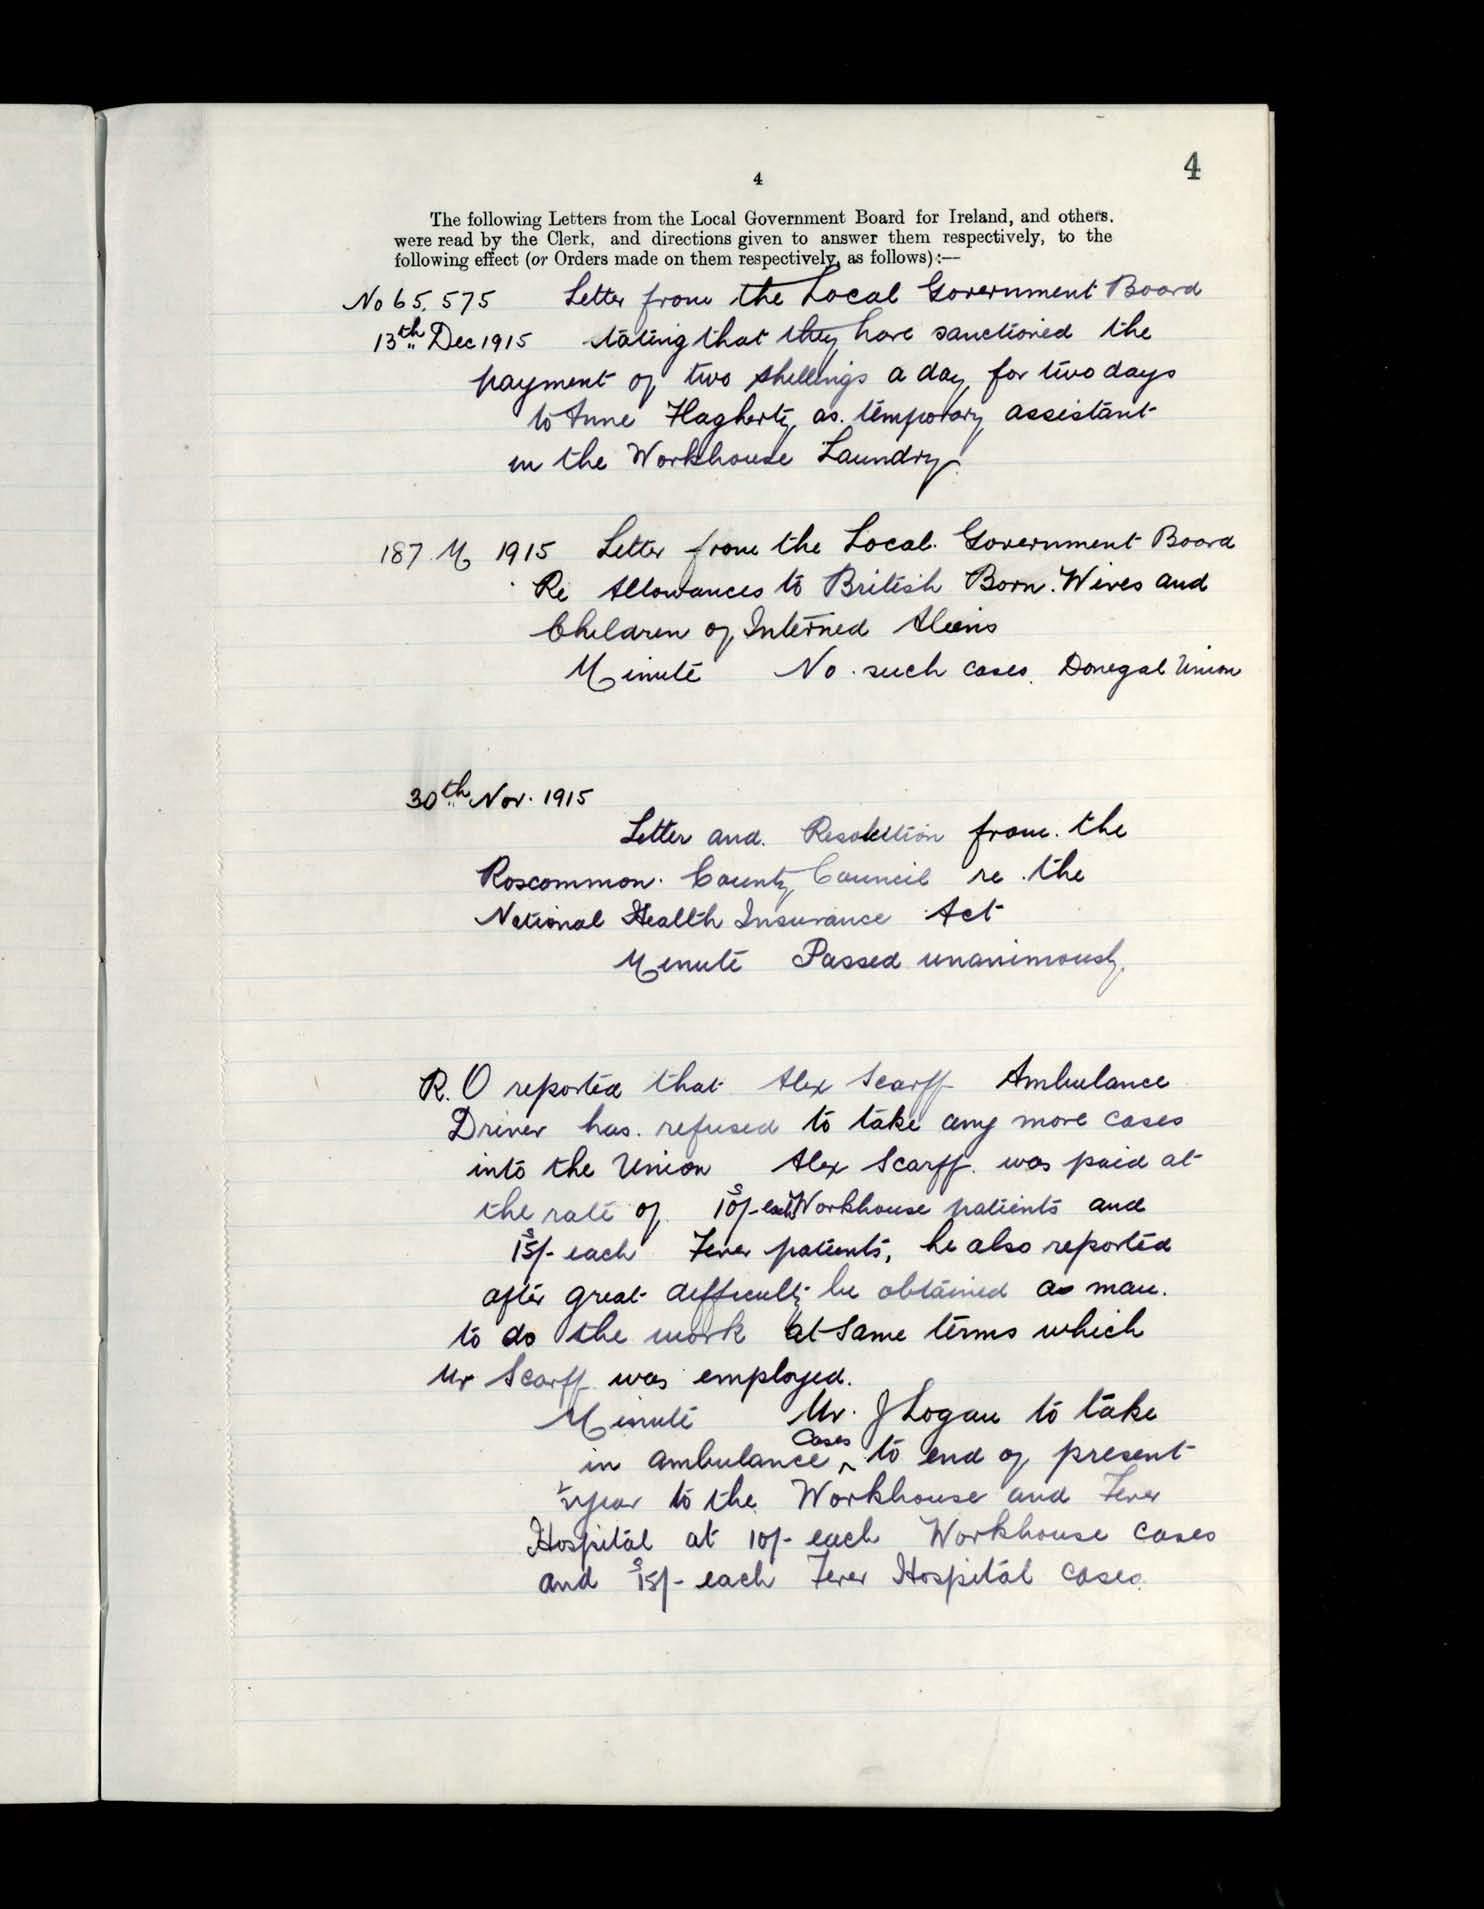 4
4
The following Letters from the Local Government Board for Ireland, and others.
were read by the Clerk, and directions given to answer them respectively, to the
following effect (or Orders made on them respectively, as follows):—
No 65.575 Letter from the Local Government Board
13th Dec 1915 stating that they have sanctioned the
payment of two shillings a day for two days
to Anne Hagherty as. temporary assistant
in the Workhouse Laundry.
187 M 1915 Letter from the Local. Government Board
Re Allowances to British Born. Wives and
Children of Interned Aleins
Minute No. such cases. Donegal Union
30th Nov. 1915
Letter and. Resolution from. the
Roscommon. County Council re. the
National Health Insurance Act
Minute Passed unanimously.
R. O reported that Alex Scarff Ambulance
Driver has. refused to take any more cases
into the Union Alex Scarff. was paid at
the rate of 10s/- each Workhouse patients and
15s/- each Fever patients, he also reported
after great difficulty he obtained a man.
to do the work at same terms which
Mr Scarff was employed.
Minute Mr. J Logan to take
in ambulance Cases to end of present
½ year to the Workhouse and Fever
Hospital at 10/- each Workhouse cases
and 15s/- each Fever Hospital cases.